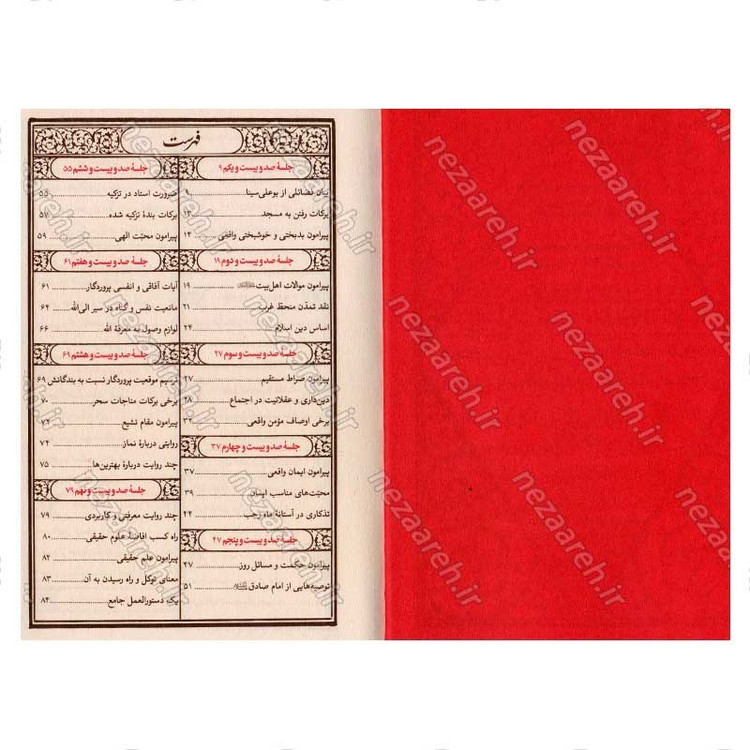 فهرست
جلسهٔ صد و بیست و یکم ۹
بیان فضائلی از بوعلی‌سینا ۹
برکات رفتن به مسجد ۱۳
پیرامون بدبختی و خوشبختی واقعی ۱۴
جلسهٔ صد و بیست و دوم ۱۹
پیرامون موالات اهل‌بیت ۱۹
نقد تمدّن منحطّ غرب ۲۱
اساس دین اسلام ۲۴
جلسهٔ صد و بیست و سوم ۲۷
پیرامون صراط مستقیم ۲۷
دین‌داری و عقلانیت در اجتماع ۲۸
برخی اوصاف مؤمن واقعی ۳۲
جلسهٔ صد و بیست و چهارم ۳۷
پیرامون ایمان واقعی ۳۷
محبّت‌های مناسب ایمان ۳۹
تذکاری در آستانهٔ ماه رجب ۴۴
جلسهٔ صد و بیست و پنجم ۴۷
پیرامون حکمت و مسائل روز ۴۷
توصیه‌هایی از امام صادق ۵۱
جلسهٔ صد و بیست و ششم ۵۵
ضرورت استاد در تزکیه ۵۵
برکات بندهٔ تزکیه شده ۵۷
پیرامون محبّت الهی ۵۹
جلسهٔ صد و بیست و هفتم ۶۱
آیات آفاقی و انفسی پروردگار ۶۱
مانعیت نفس و گناه در سیر الی‌الله ۶۴
لوازم وصول به معرفة الله ۶۶
جلسهٔ صد و بیست و هشتم ۶۹
ترسیم موقعیت پروردگار نسبت به بندگانش ۶۹
برخی برکات مناجات سحر ۷۰
پیرامون مقام تشیع ۷۲
روایتی دربارهٔ نماز ۷۴
چند روایت دربارهٔ بهترین‌ها ۷۵
جلسهٔ صد و بیست و نهم ۷۹
چند روایت معرفتی و کاربردی ۷۹
راه کسب افاضهٔ علوم حقیقی ۸۰
پیرامون علم حقیقی ۸۲
معنای توکل و راه رسیدن به آن ۸۳
یک دستورالعمل جامع ۸۴
nezaareh.ir
nezaareh.ir
nezaareh.ir
nezaareh.ir
nezaareh.ir
nezaareh.ir
nezaareh.ir
nezaareh.ir
nezaareh.ir